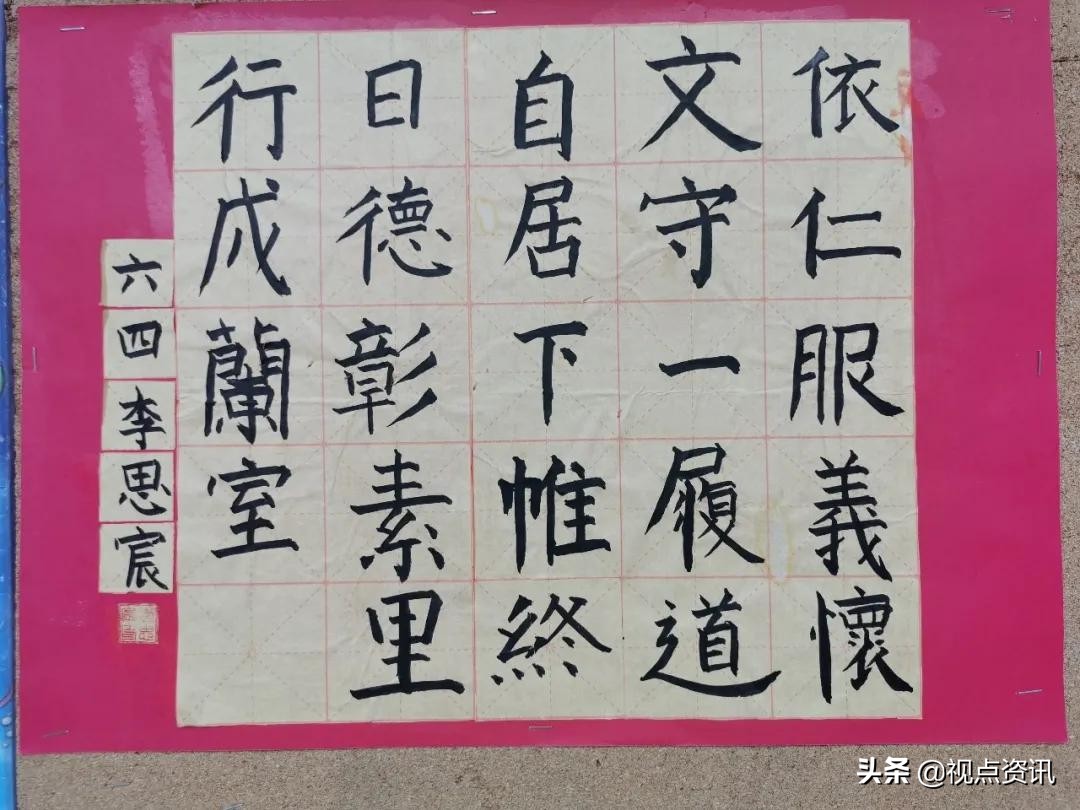 依仁服義懷
文守一履道
自居下帷終
日德彰素里
行成蘭室
六四李思宸
头条 @视点资讯